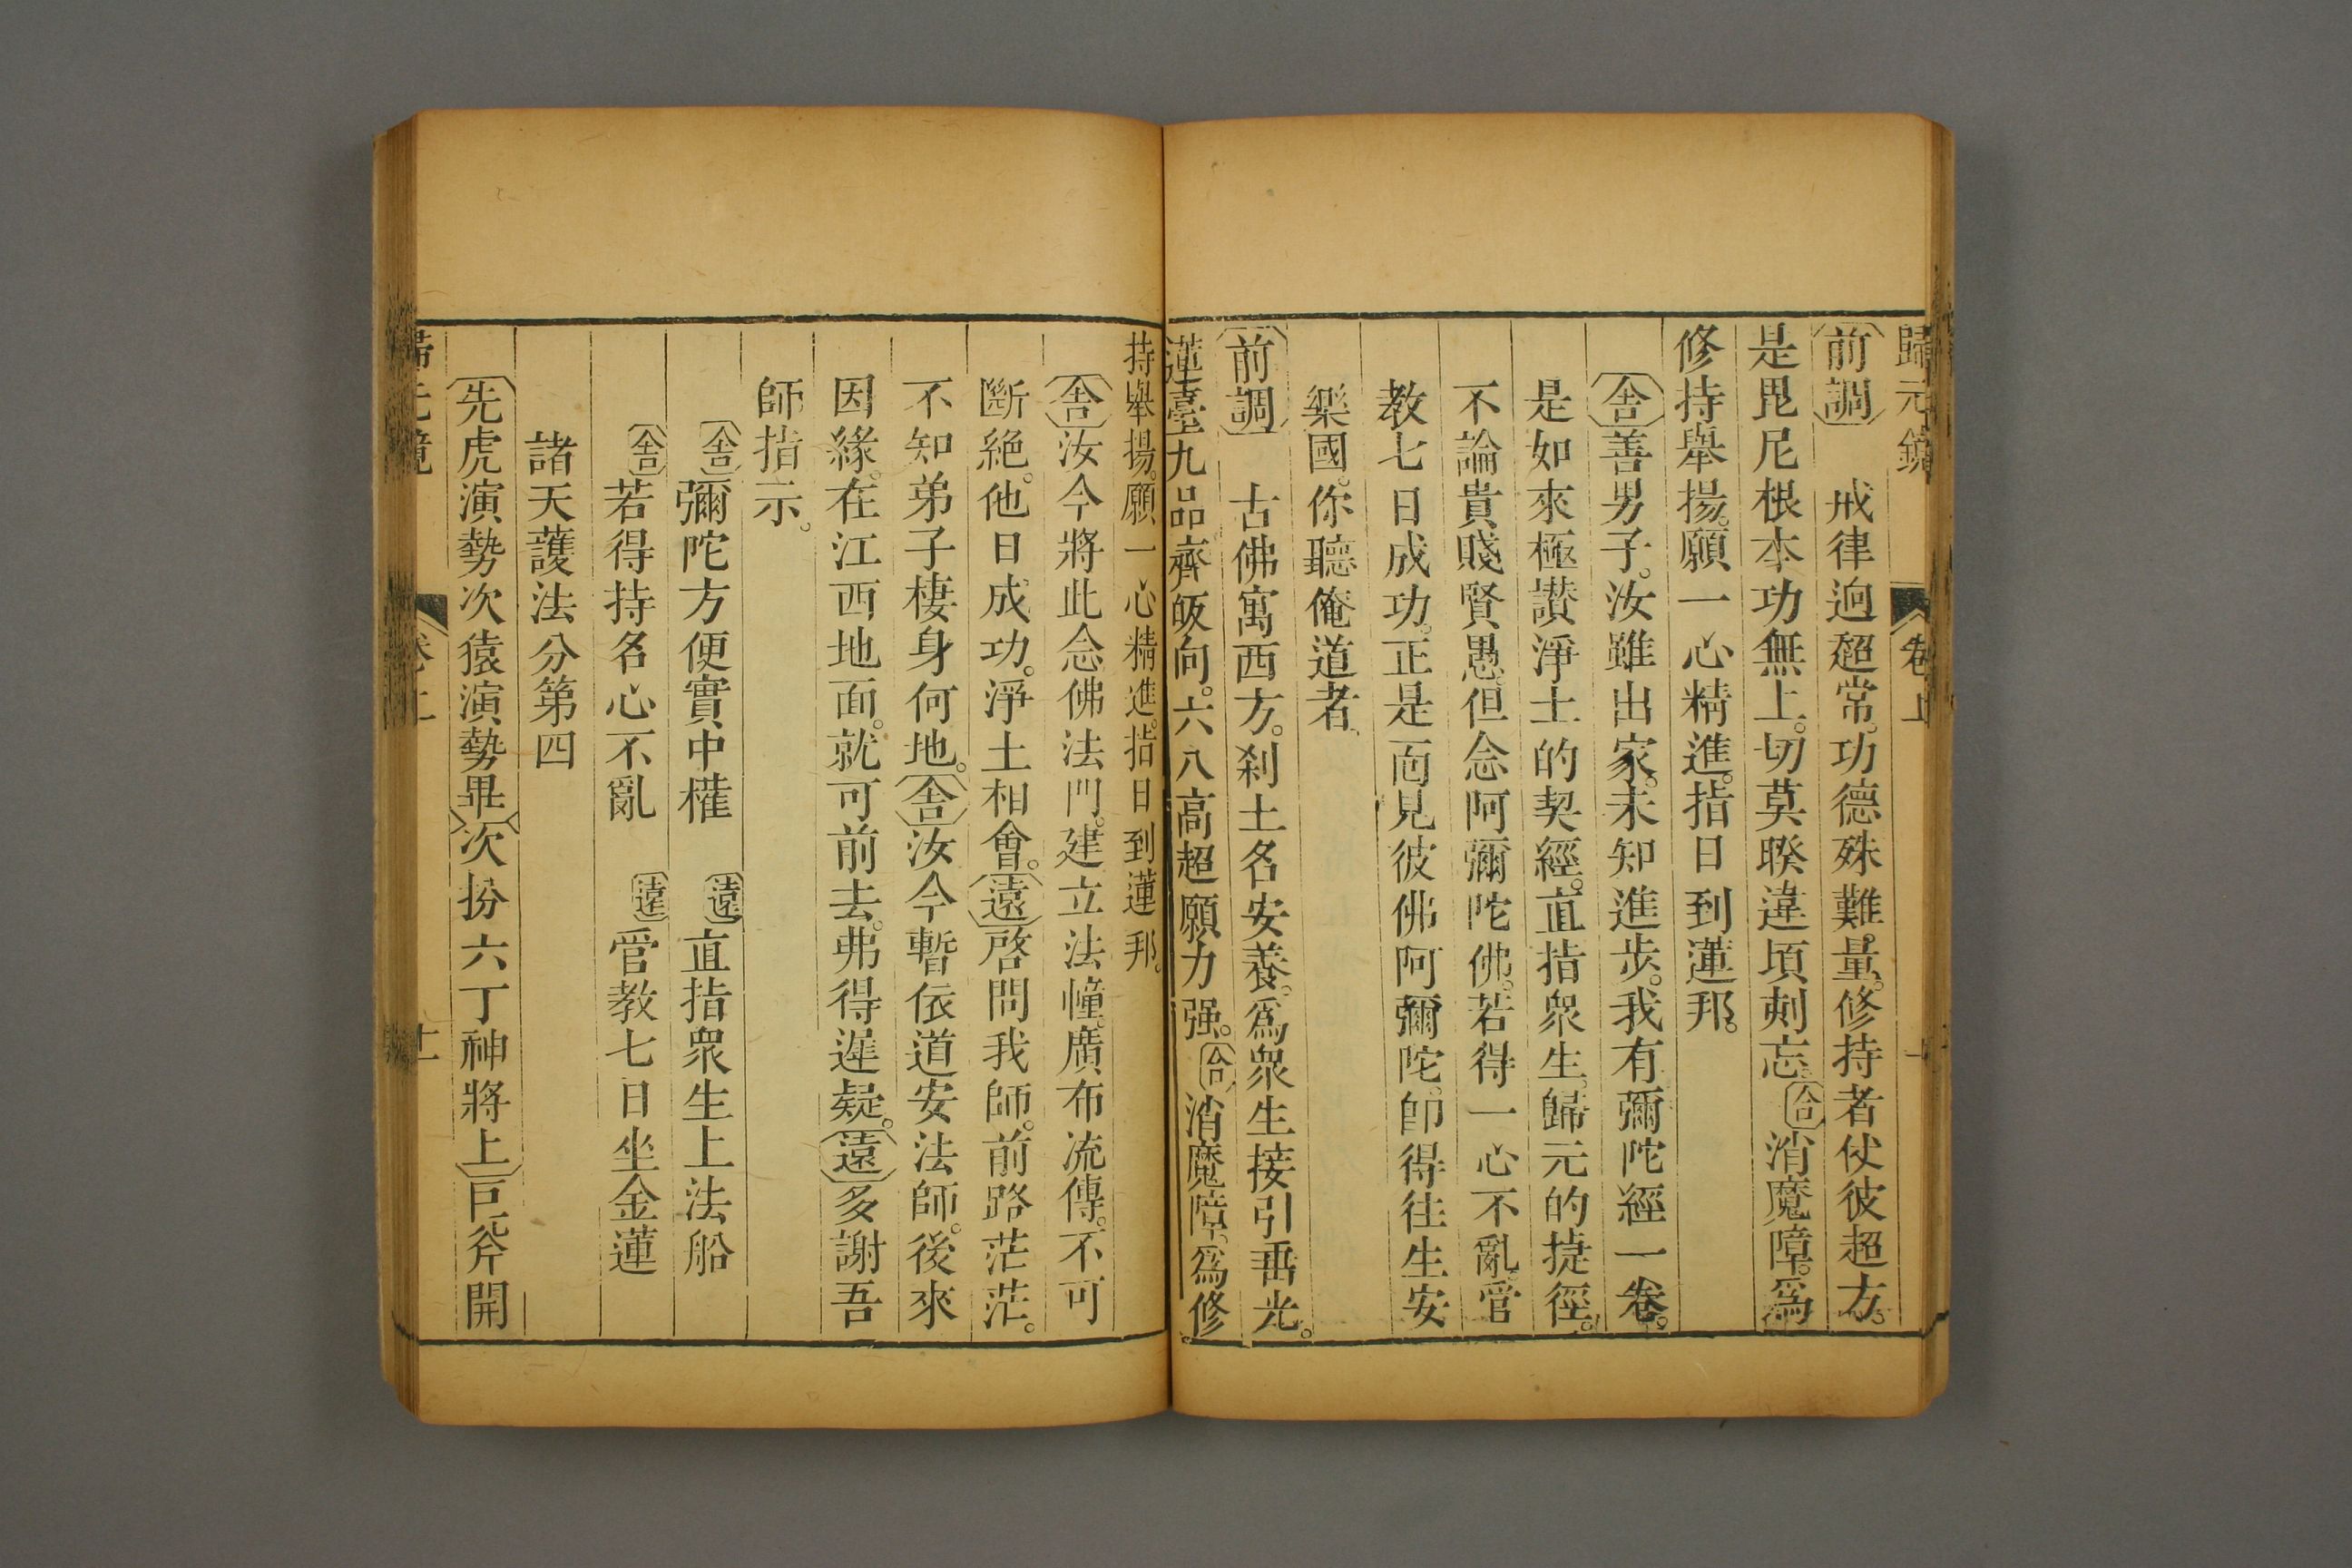 歸元鏡 卷上
前調 戒律逈超常。功德殊難量。修持者仗彼超方。
是毘尼根本功無上。切莫睽違頃刻忘。合消魔障。爲
修持舉揚。願一心精進。指日到蓮邦。
舍善男子。汝雖出家。未知進步。我有彌陀經一卷。
是如來極讃淨土的契經。直指衆生。歸元的捷徑。
不論貴賤賢愚。但念阿彌陀佛。若得一心不亂。管
教七日成功。正是面見彼佛阿彌陀。卽得往生安
樂國。你聽俺道者、
前調 古佛寓西方。刹土名安養。爲衆生接引垂光。
蓮臺九品齊皈向。六八高超願力强。合消魔障。爲修
持舉揚。願一心精進。指日到蓮邦。
舍汝今將此念佛法門。建立法幢。廣布流傳。不可
斷絕。他日成功。淨土相會。遠啓問我師。前路茫茫。
不知弟子棲身何地。舍汝今暫依道安法師。後來
因緣。在江西地面。就可前去。弗得遲疑。遠多謝吾
師指示。
舍彌陀方便實中權 遠直指衆生上法船
舍若得持名心不亂 遠管教七日坐金蓮
諸天護法分第四
先虎演勢次猿演勢畢次扮六丁神將上巨斧開
歸元鏡 卷上 十一